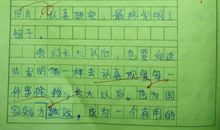 回去，认真研究，最终发明了
锯子。
我们长大以后，也要向这
些发明家一样去认真观察每一
件事物，长大以后，为祖国
贡献力，成为一个有用的